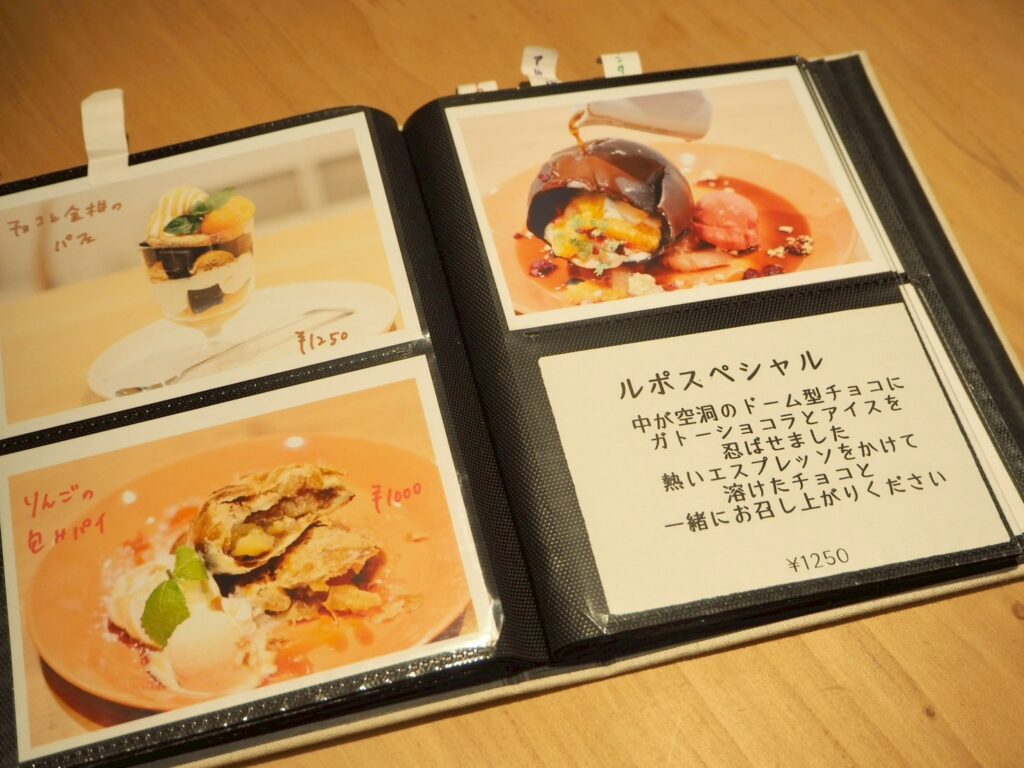 チョコと金柑の
パフェ
¥1250
りんごの
包みパイ
¥1000
ルポスペシャル
中が空洞のドーム型チョコに
ガトーショコラとアイスを
忍ばせました
熱いエスプレッソをかけて
溶けたチョコと
一緒にお召し上がりください
¥1250